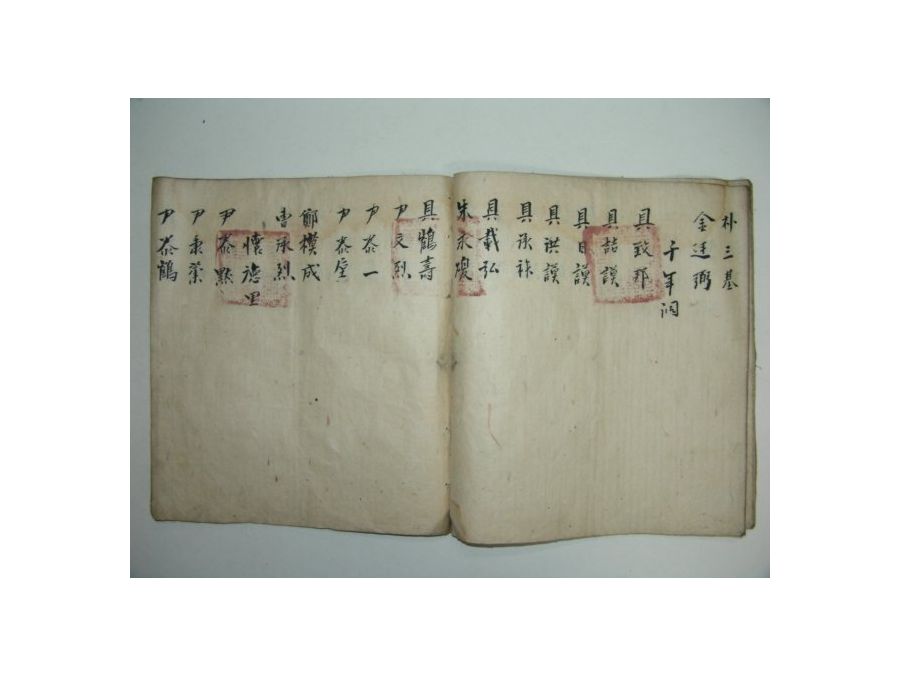 朴三基
金廷弼
千年洞
具致邦
具喆謨
具日謨
具洪謨
具承祿
具載弘
朱永瓊
具鶴壽
尹文烈
尹泰一
尹泰
鄭模成
曹承烈
懷德里
尹泰點
尹秉榮
尹泰鶴